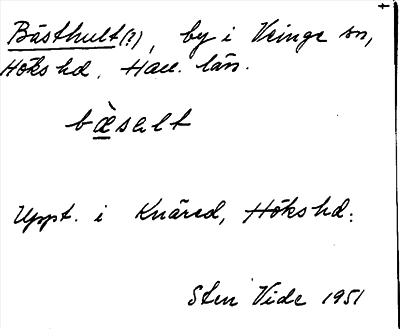 Båsthult(?), by i Veinge sn,
Höks hd. Hall. län.
bæ̀salt
Uppt. i Knäred, Höks hd.
Sten Vide 1951